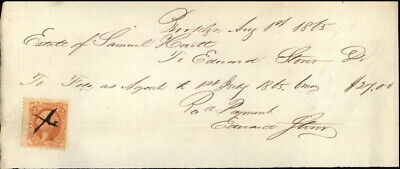 Brooklyn Aug 1st 1865
Estate of Samuel Hart
To Edward Storer Dr
To Fees as Agent to 1st July 1865. 6mos $27.00
Rec'd Payment
Edward Storer